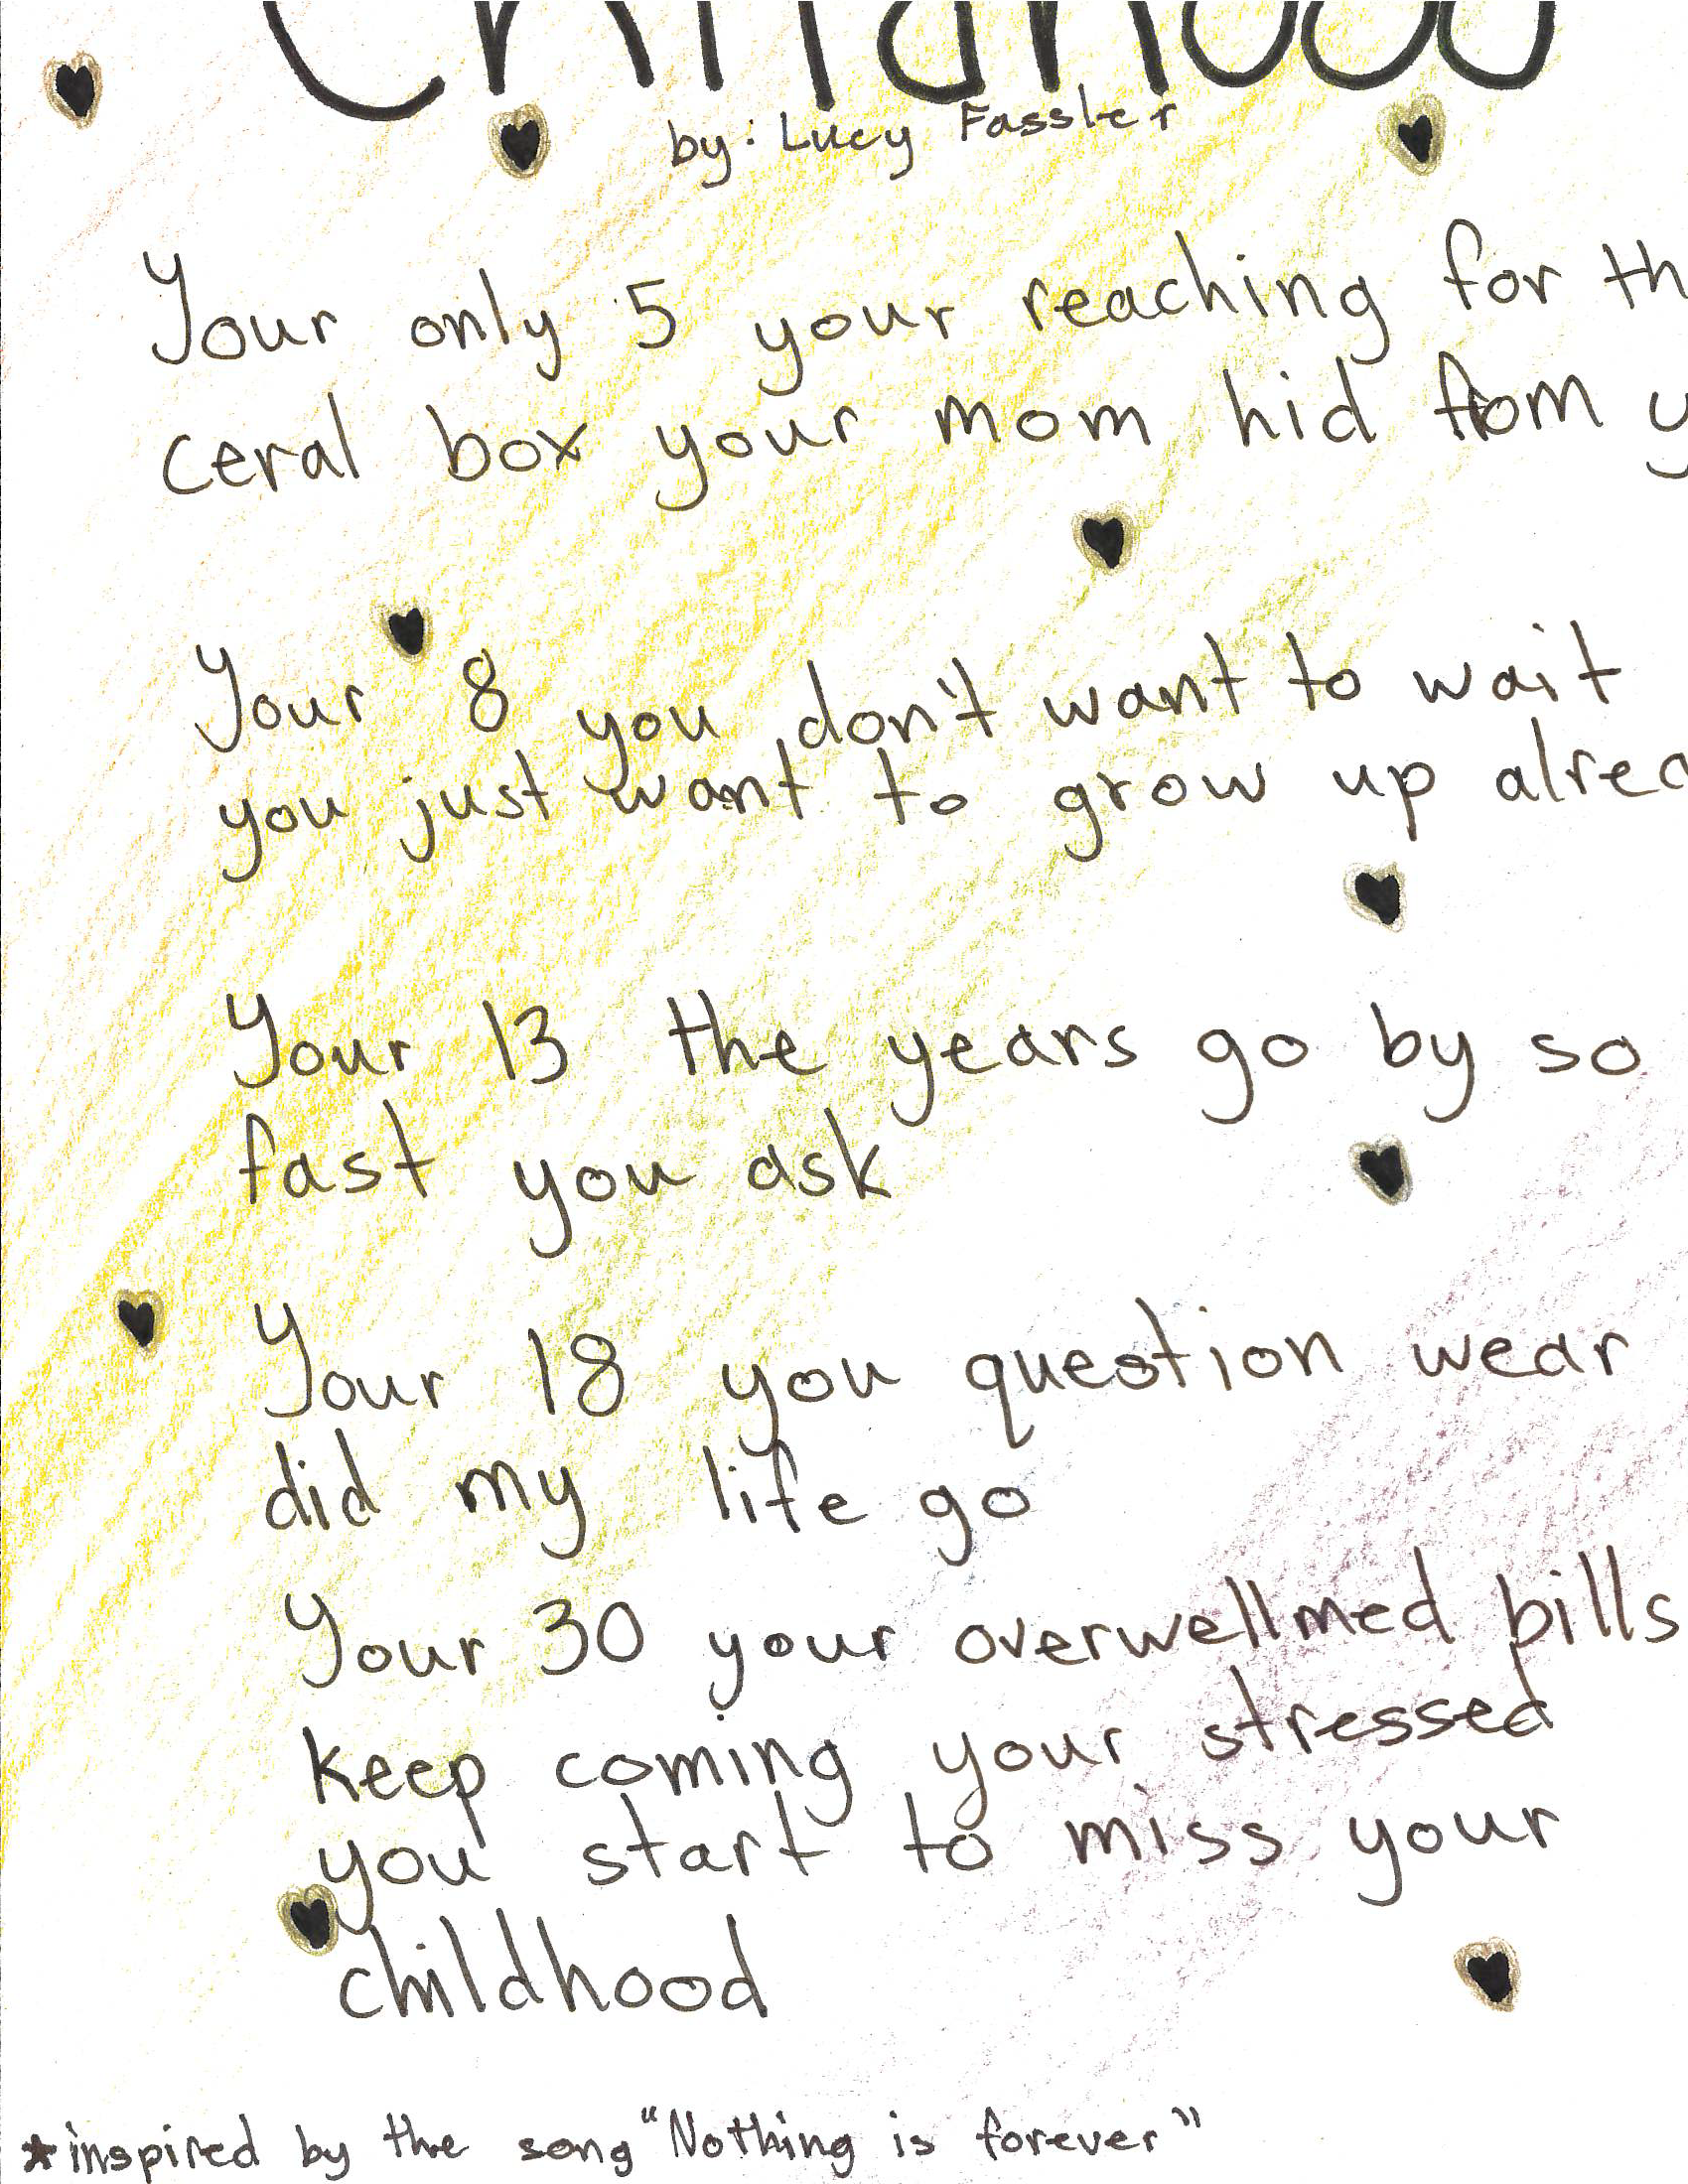 Childhood
by: Lucy Fassler
Your only 5 your reaching for th
ceral box your mom hid from y
Your 8 you don't want to wait
you just want to grow up alrea
Your 13 the years go by so
fast you ask
Your 18 you question wear
did my life go
Your 30 your overwellmed bills
keep coming your stressed
you start to miss your
childhood
*inspired by the song "Nothing is forever"